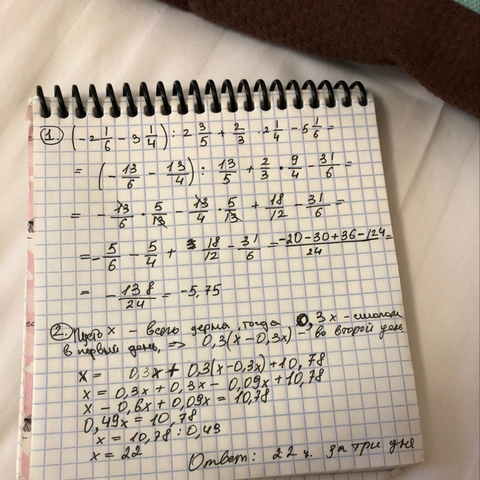 1 (-2 1/6 - 3 1/4) : 2 3/5 + 2/3 · 2 1/4 - 5 1/6 =
= (-13/6 - 13/4) : 13/5 + 2/3 · 9/4 - 31/6 =
= -13/6 · 5/13 - 13/4 · 5/13 + 18/12 - 31/6 =
= -5/6 - 5/4 + 18/12 - 31/6 = -20-30+36-124/24 =
= -138/24 = -5,75
2. Пусть x - всего зерна, тогда 0,3x - смололи
в первый день, => 0,3(x-0,3x) - во второй день
x = 0,3x + 0,3(x-0,3x)+10,78
x = 0,3x + 0,3x - 0,09x + 10,78
x - 0,6x + 0,09x = 10,78
0,49x = 10,78
x = 10,78 : 0,49
x = 22
Ответ: 22 ц. за три дня